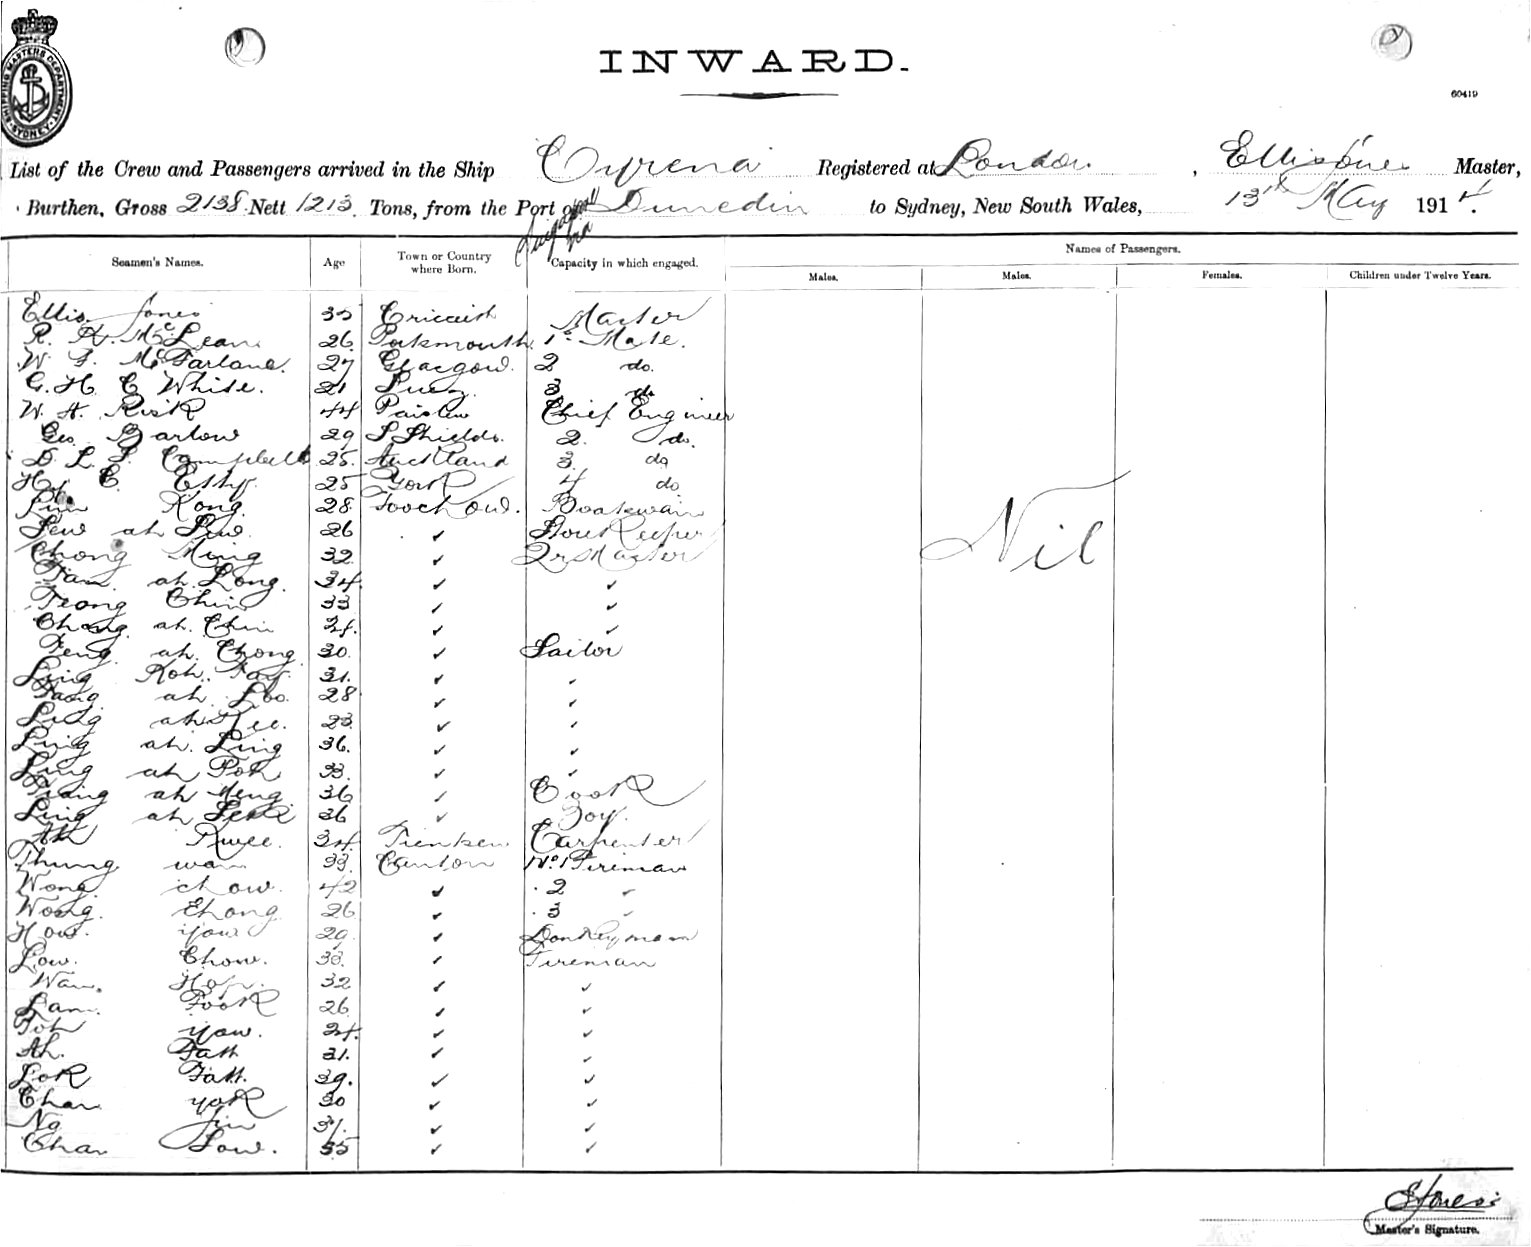 SHIPPING MASTERS DEPARTMENT SYDNEY
INWARD.
60419
List of the Crew and Passengers arrived in the Ship Cyrena Registered at London, Ellis Jones Master,
Burthen, Gross 2138 Nett 1213 Tons, from the Port of Dunedin to Sydney, New South Wales, 13th May 191
via
Seamen's Names. Age Town or Country where Born. Capacity in which engaged. Names of Passengers.
Males. Males. Females. Children under Twelve Years.
Ellis Jones 35 Criccieth Master
R. H. McLean 26 Portsmouth 1st Mate.
W. F. McFarlane. 27 Glasgow. 2 do.
G. H. C White. 21 Suez 3 do
W. H. Risk 44 Paisley Chief Engineer
Geo Barlow 29 S Shields. 2. do.
D. L. S. Campbell 25. Auckland 3. do
Hy C. Esty. 25 York 4 do
Kong. 28. Foochow. Boatswain
Sew ah Siw. 26 ✓ Store Keeper
Chong Ming 32 ✓ Qr Master
Tam ah Long. 34. ✓ ✓
Teong Chin 33 ✓ ✓
Chong ah. Chin 24. ✓ ✓
Teng ah. Chong 30. ✓ Sailor
Ling Koh. Tay. 31. ✓ ✓
Tang ah Loo. 28 ✓ ✓
Ling ah Kee. 23. ✓ ✓
Ling ah. Ling 36. ✓ ✓
Ling ah Poh 33. ✓ ✓
Tiang ah Meng 36 ✓ Cook
Ling ah Sek 36 ✓ Boy.
Ah Kwee. 34. Tientsen Carpenter
Thung wan 33. Canton No. 1 Fireman
Wong chow. 42 ✓ 2 ✓
Wong. Chong 26 ✓ 3 ✓
How. yow 29. ✓ Donkeyman
Low. Chow. 33. ✓ Fireman
Wan. Hop. 32 ✓ ✓
Lam. Fook 26 ✓ ✓
Toh yow. 24. ✓ ✓
Ah. Fatt 21. ✓ ✓
Lok Fatt. 39. ✓ ✓
Chan yok 30 ✓ ✓
Ng Jin 31. ✓ ✓
Chan Sow. 35 ✓ ✓
Nil
E Jones
Master's Signature.